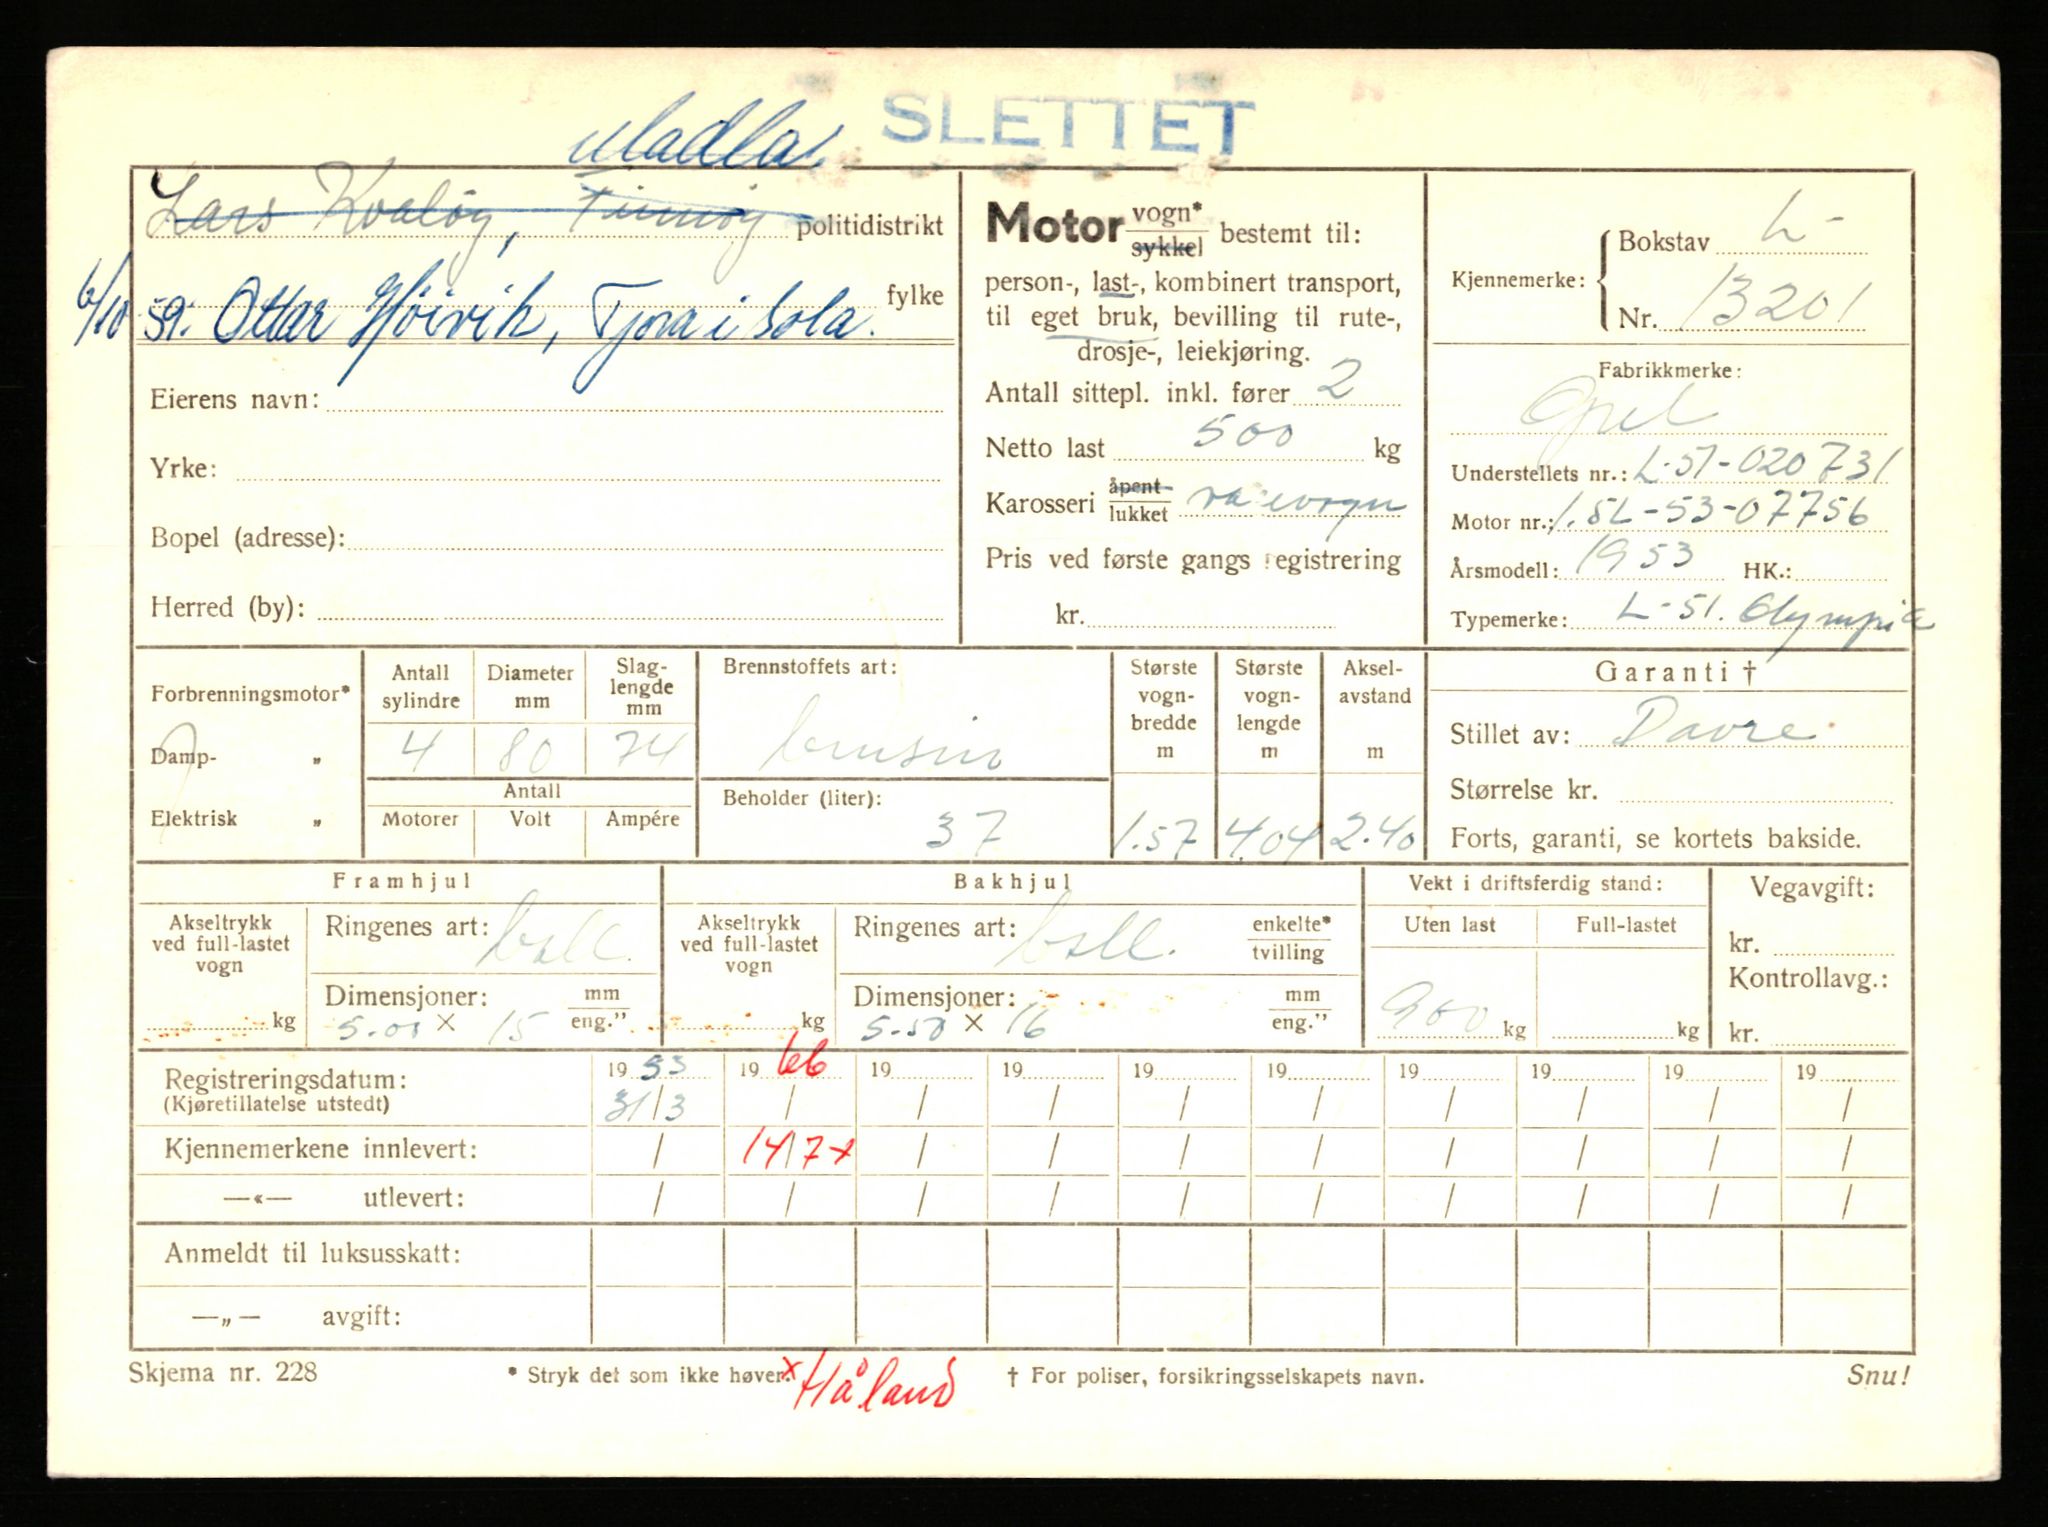 SLETTET
Madla.
Lars Kvaløy, Finnøy politidistrikt
6/10 59. Ottar Høivik, Tjora i Sola. fylke
Eierens navn:
Yrke:
Bopel (adresse):
Herred (by):
Motor vogn* sykkel bestemt til:
person-, last-, kombinert transport,
til eget bruk, bevilling til rute-,
drosje-, leiekjøring.
Antall sittepl. inkl. fører 2
Netto last 500 kg
Karosseri åpent lukket varevogn
Pris ved første gangs registrering
kr.
Kjennemerke: Bokstav L-
Nr. 13201
Fabrikkmerke:
Opel
Understellets nr.: L-51-020731
Motor nr.: 1.5L-53-07756
Årsmodell: 1953 HK.:
Typemerke: L-51. Olympia
Forbrenningsmotor*
Damp- „
Elektrisk „
Antall sylindre Diameter mm Slag-lengde mm
4 80 74
Antall
Motorer Volt Ampére
Brennstoffets art:
bensin
Beholder (liter):
37
Største vogn-bredde m Største vogn-lengde m Aksel-avstand m
1.57 4.04 2.40
Garanti †
Stillet av: Davre
Størrelse kr.
Forts, garanti, se kortets bakside.
Framhjul
Akseltrykk ved full-lastet vogn kg
Ringenes art: ball.
Dimensjoner: mm eng.”
5.00 × 15
Bakhjul
Akseltrykk ved full-lastet vogn kg
Ringenes art: ball. enkelte* tvilling
Dimensjoner: mm eng.”
5.50 × 16
Vekt i driftsferdig stand:
Uten last Full-lastet
900 kg kg
Vegavgift:
kr.
Kontrollavg.:
kr.
Registreringsdatum: 1953 1966 19 19 19 19 19 19 19 19
(Kjøretillatelse utstedt) 31/3 / / / / / / / / /
Kjennemerkene innlevert: / 14/7 x / / / / / / / /
—«— utlevert: / / / / / / / / / /
Anmeldt til luksusskatt:
—„— avgift:
Skjema nr. 228 * Stryk det som ikke høver. x Håland † For poliser, forsikringsselskapets navn. Snu!